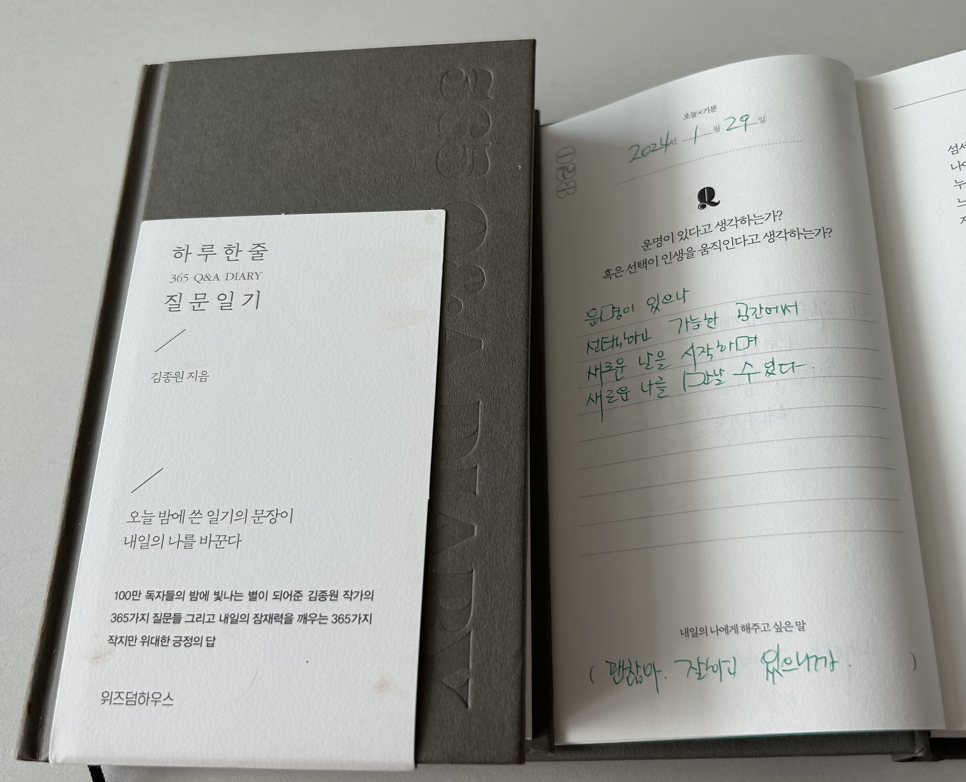 365 Q&A DIARY
하루 한 줄
365 Q&A DIARY
질문 일기
김종원 지음
오늘 밤에 쓴 일기의 문장이
내일의 나를 바꾼다
100만 독자들의 밤에 빛나는 별이 되어준 김종원 작가의
365가지 질문들 그리고 내일의 잠재력을 깨우는 365가지
작지만 위대한 긍정의 답
위즈덤하우스
오늘×기분
2024년 1월 29일
028
Q
운명이 있다고 생각하는가?
혹은 선택이 인생을 움직인다고 생각하는가?
운명이 있으나
선택하고 가능한 공간에서
새로운 날을 시작하며
새로운 나를 만날 수 있다.
내일의 나에게 해주고 싶은 말
( 괜찮아. 잘하고 있으니까. )